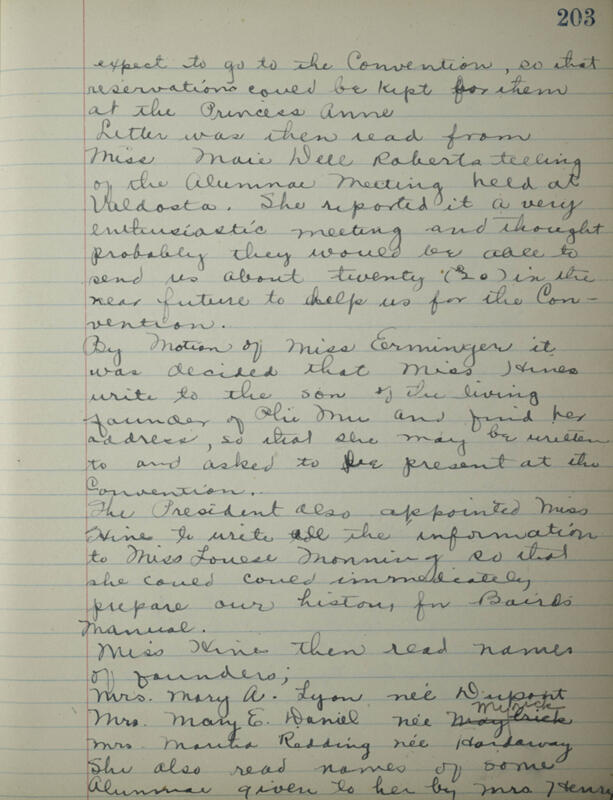 203
expect to go to the Convention, so that
reservations could be kept for them
at the Princess Anne
Letter was then read from
Miss Maie Dell Roberta teeling
of the Alumnae Meeting held at
Valdosta. She reported it a very
enthusiastic meeting and thought
probably they would be able to
send us about twenty (20) in the
near future to help us for the Con-
vention.
By Motion of Miss Erminger it
was decided that Miss Hines
write to the son of the living
founder of Phi Mu and find her
address, so that she may be written
to and asked to be present at the
Convention.
The President also appointed Miss
Hine to write all the information
to Miss Louese Monning so that
she could could immediately
prepare our history for Bairds
Manual.
Miss Hines then read names
of founders;
Mrs. Mary A. Lyon neé Dupont
Mrs. Mary E. Daniel neé Myrick
Mrs. Martha Redding neé Hardaway
She also read names of some
Alumnae given to her by Mrs Henry